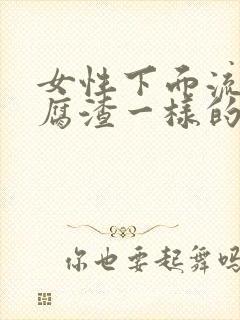 女性下面流
腐渣一样的
你也要起舞吗